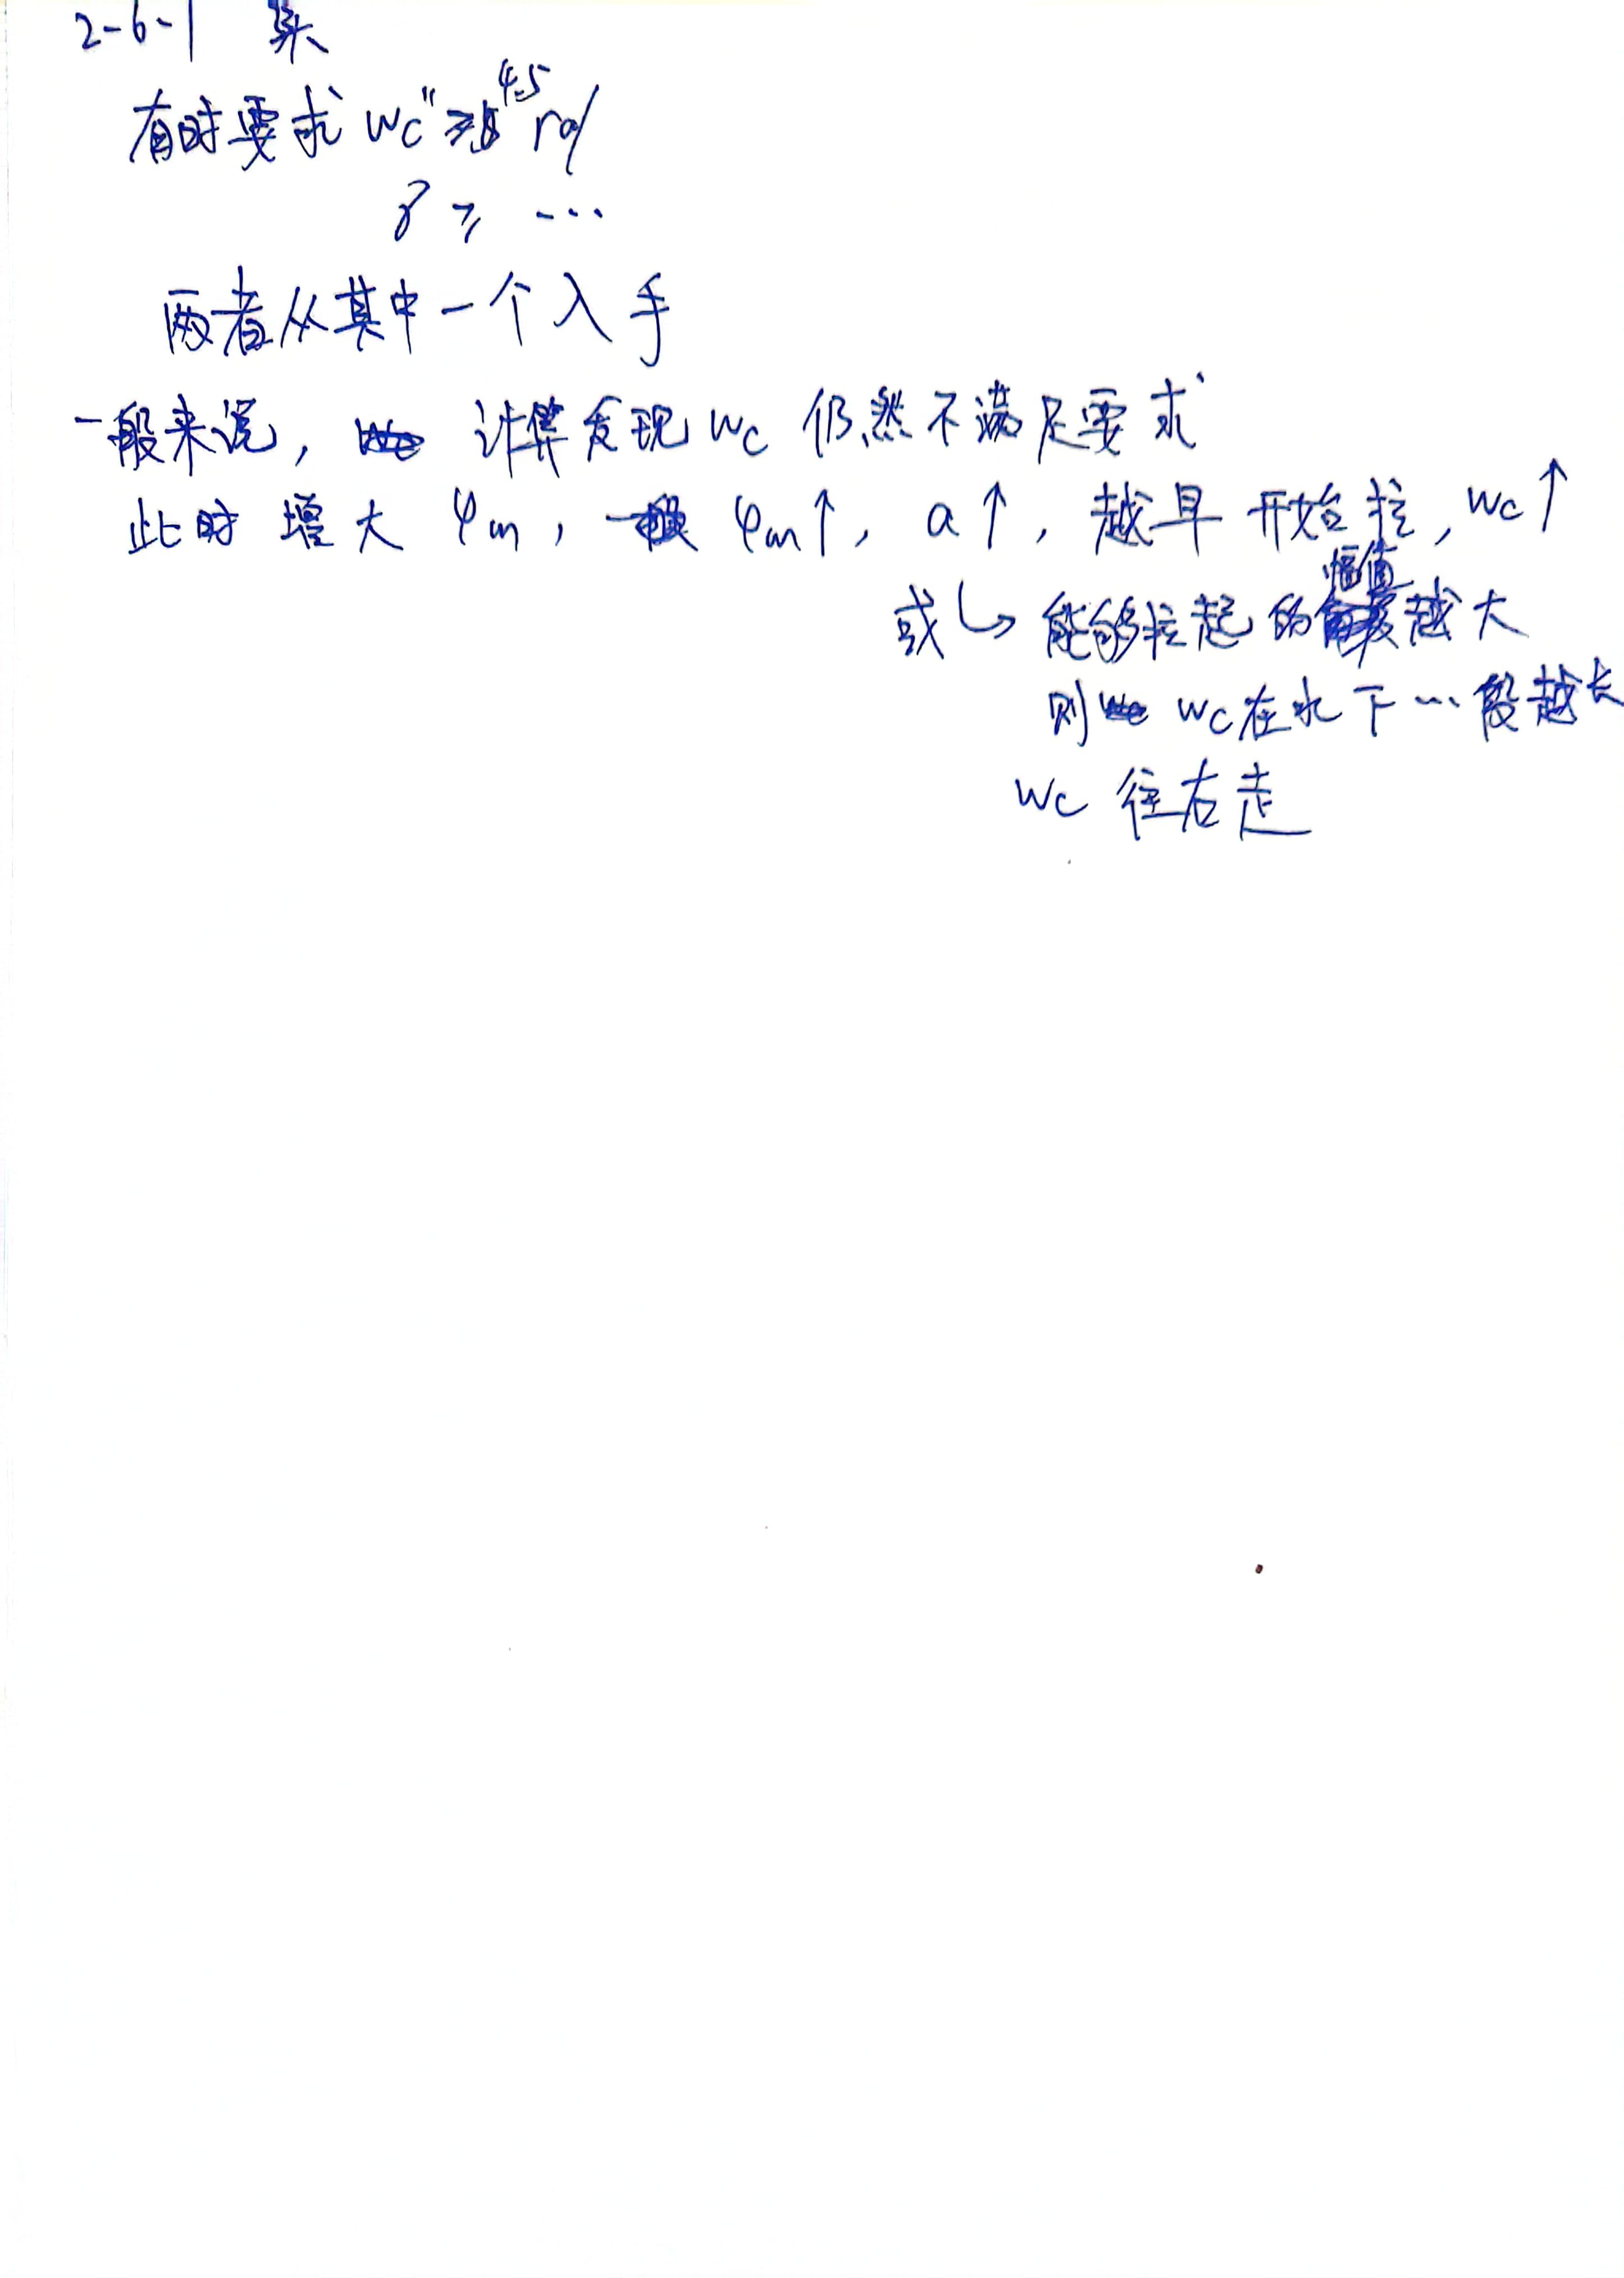 2-6-1
有时要求 wc" ≥ 4.5 ra/
γ ≥ ...
两者从其中一个入手
一般来说, 计算发现 wc 仍然不满足要求
此时 增大 φm, φm↑, a↑, 越早开始拉, wc↑
或↳ 能够拉起的幅值越大
则 wc在水下...段越长
wc 往右走